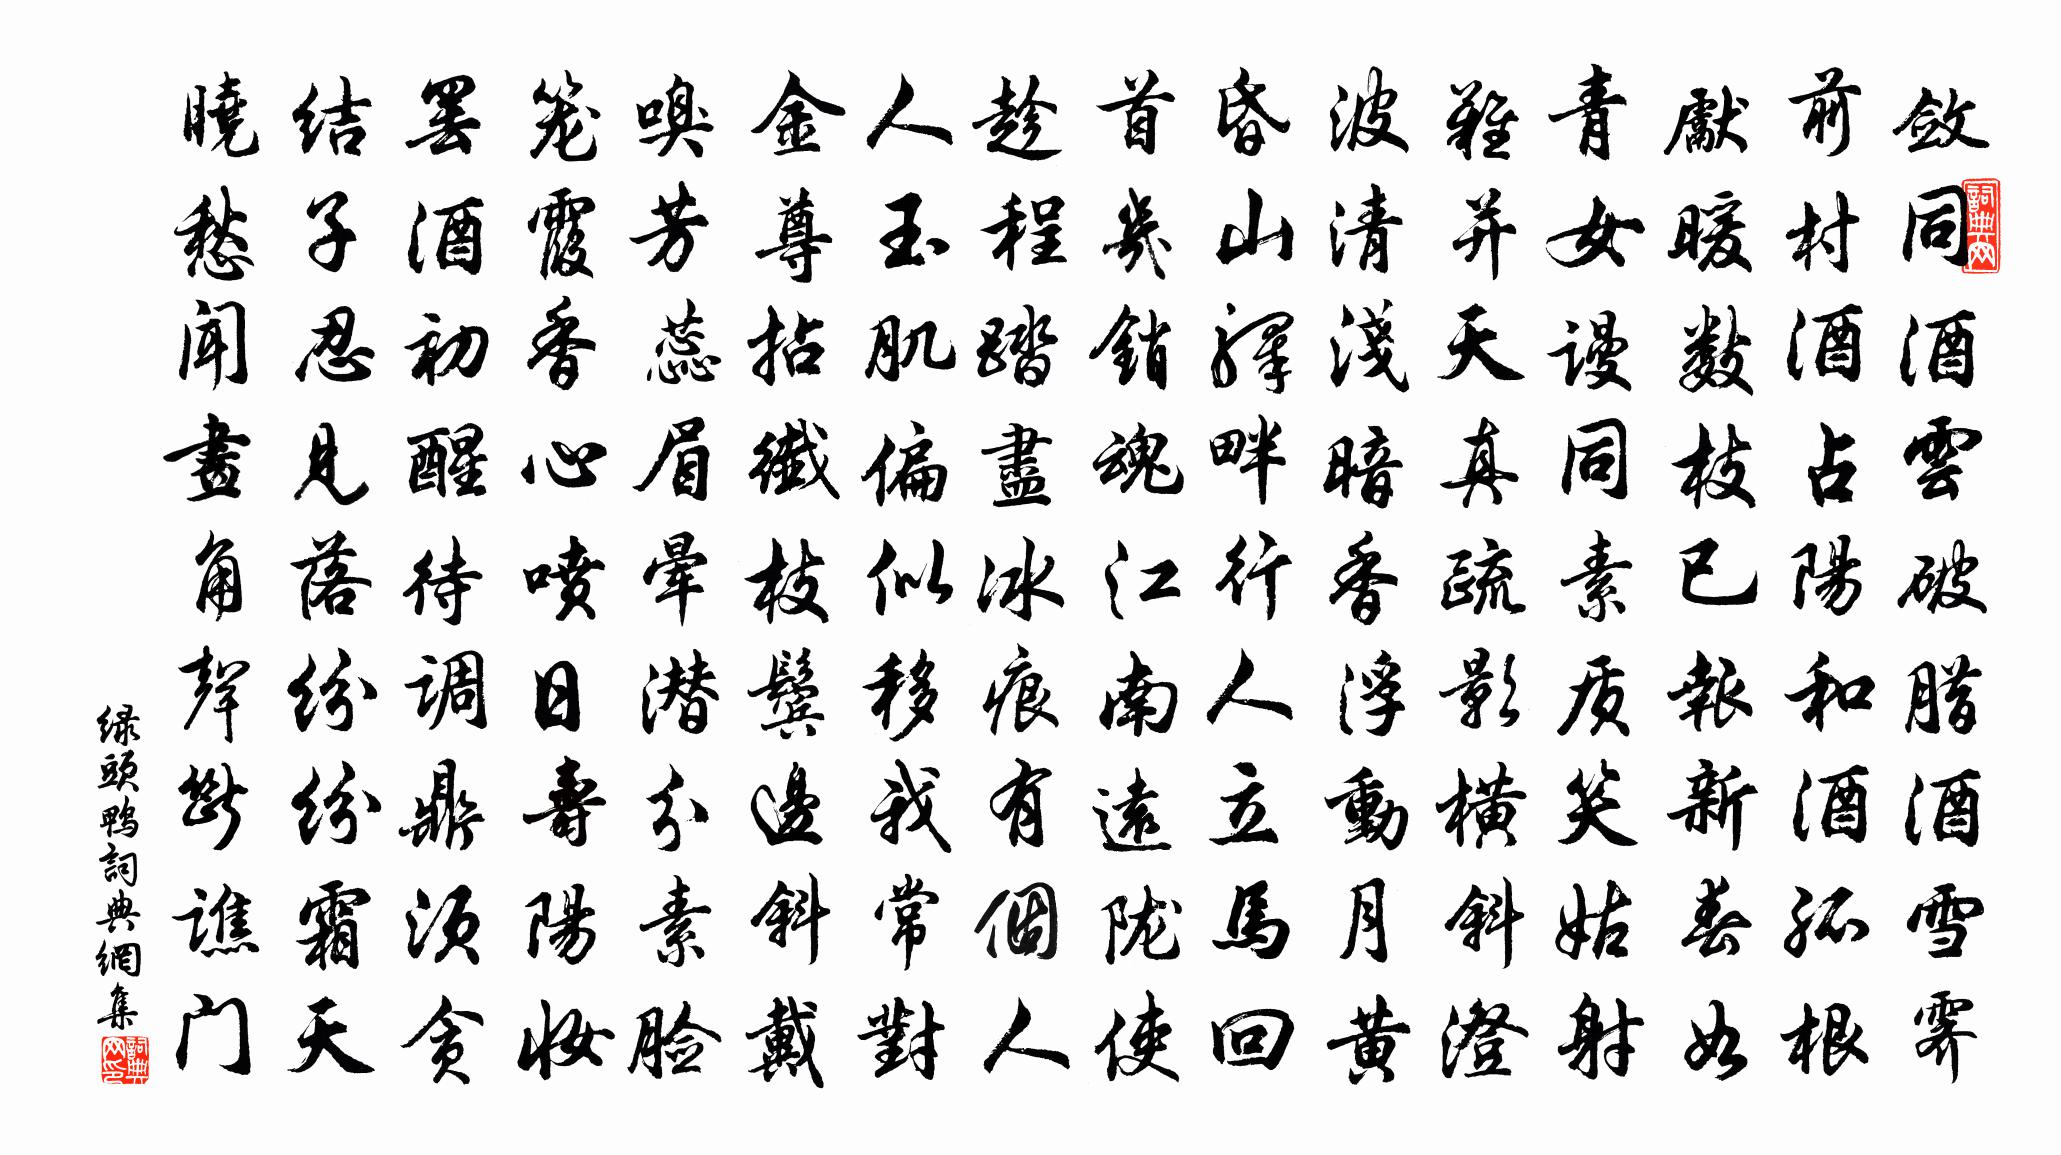 敛同酒雲破腊酒雪霁
前村酒占陽和酒孤根
獻暖数枝已報新春如
青女谩同素质笑姑射
難并天真疏影横斜澄
波清淺暗香浮動月黄
昏山驛畔行人立馬回
首幾銷魂江南遠陇使
趁程踏盡冰痕有個人
人玉肌偏似移我常對
金尊拈纖枝鬓邊斜戴
嗅芳蕊眉暈潜分素脸
笼霞香心喷日壽陽妆
罢酒初醒待調鼎须贪
结子忍見落纷纷霜天
曉愁闻畫角聲斷譙门
绿頭鸭詞典網集
詞典网
詞典网